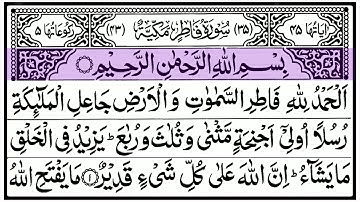 اٰیَاتُهَا ٤٥ (٣٥) سُوْرَةُ فَاطِرٍ مَّكِّیَّةٌ (٤٣) رُكُوْعَاتُهَا ٥
بِسْمِ اللّٰهِ الرَّحْمٰنِ الرَّحِیْمِ
اَلْحَمْدُ لِلّٰهِ فَاطِرِ السَّمٰوٰتِ وَ الْاَرْضِ جَاعِلِ الْمَلٰٓىِٕكَةِ
رُسُلًا اُولِیْۤ اَجْنِحَةٍ مَّثْنٰى وَ ثُلٰثَ وَ رُبٰعَ ؕ یَزِیْدُ فِی الْخَلْقِ
مَا یَشَآءُ ؕ اِنَّ اللّٰهَ عَلٰى كُلِّ شَیْءٍ قَدِیْرٌ مَا یَفْتَحِ اللّٰهُ